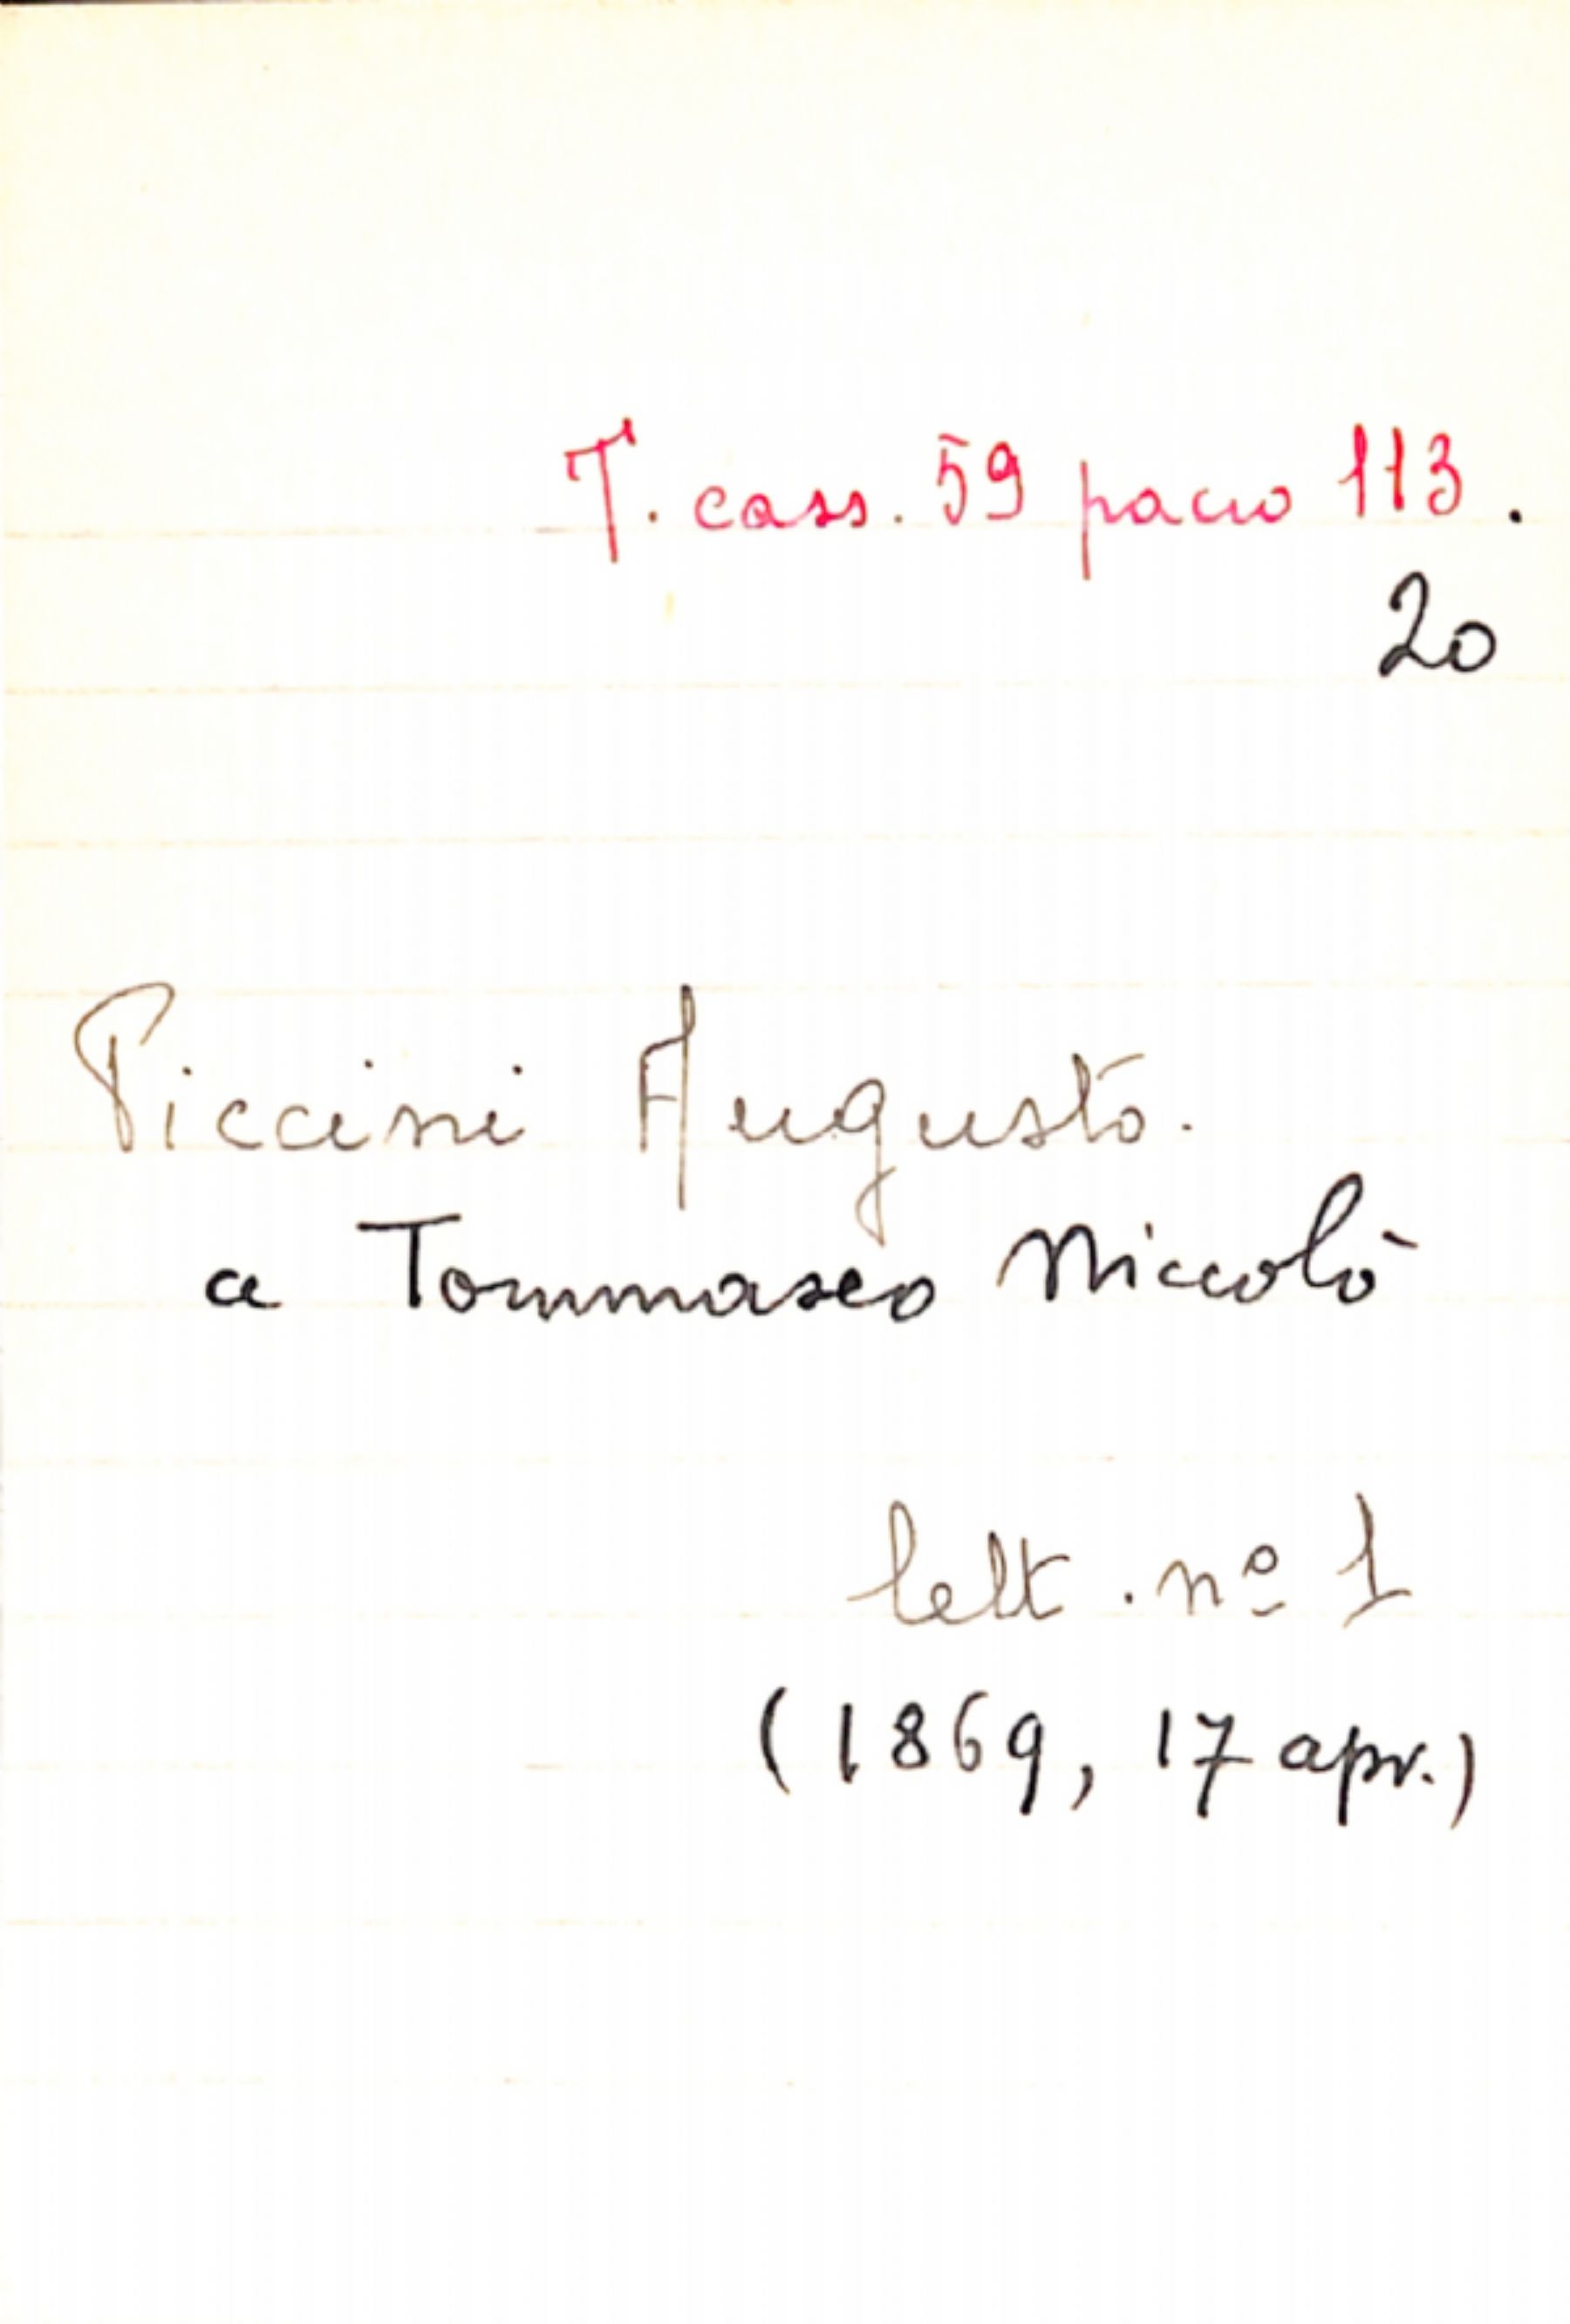 T. cass. 59 pacco 113.
20
Piccini Augusto.
a Tommaseo Niccolò
lett. nº 1
(1869, 17 apr.)